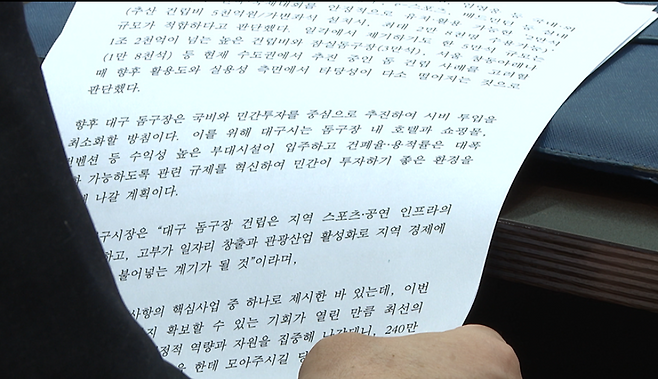 (추산 건립비 5천억원/가변좌석 설치시, 최대 2만 8천명 수용가능)
규모가 적합하다고 판단했다. 일각에서 제기하기도 한 5만석 규모는
1조 2천억이 넘는 높은 건립비와 잠실돔구장(3만석), 서울 창동아레나
(1만 8천석) 등 현재 수도권에서 추진 중인 돔 건립 사례를 고려할
때 향후 활용도와 실용성 측면에서 타당성이 다소 떨어지는 것으로
판단했다.
향후 대구 돔구장은 국비와 민간투자를 중심으로 추진하여 시비 투입을
최소화할 방침이다. 이를 위해 대구시는 돔구장 내 호텔과 쇼핑몰,
컨벤션 등 수익성 높은 부대시설이 입주하고 건폐율·용적률은 대폭
가능하도록 관련 규제를 혁신하여 민간이 투자하기 좋은 환경을
나갈 계획이다.
구시장은 "대구 돔구장 건립은 지역 스포츠·공연 인프라의
하고, 고부가 일자리 창출과 관광산업 활성화로 지역 경제에
불어넣는 계기가 될 것"이라며,
사항의 핵심사업 중 하나로 제시한 바 있는데, 이번
확보할 수 있는 기회가 열린 만큼 최선의
정적 역량과 자원을 집중해 나가겠다니, 240만
은 한데 모아주시길